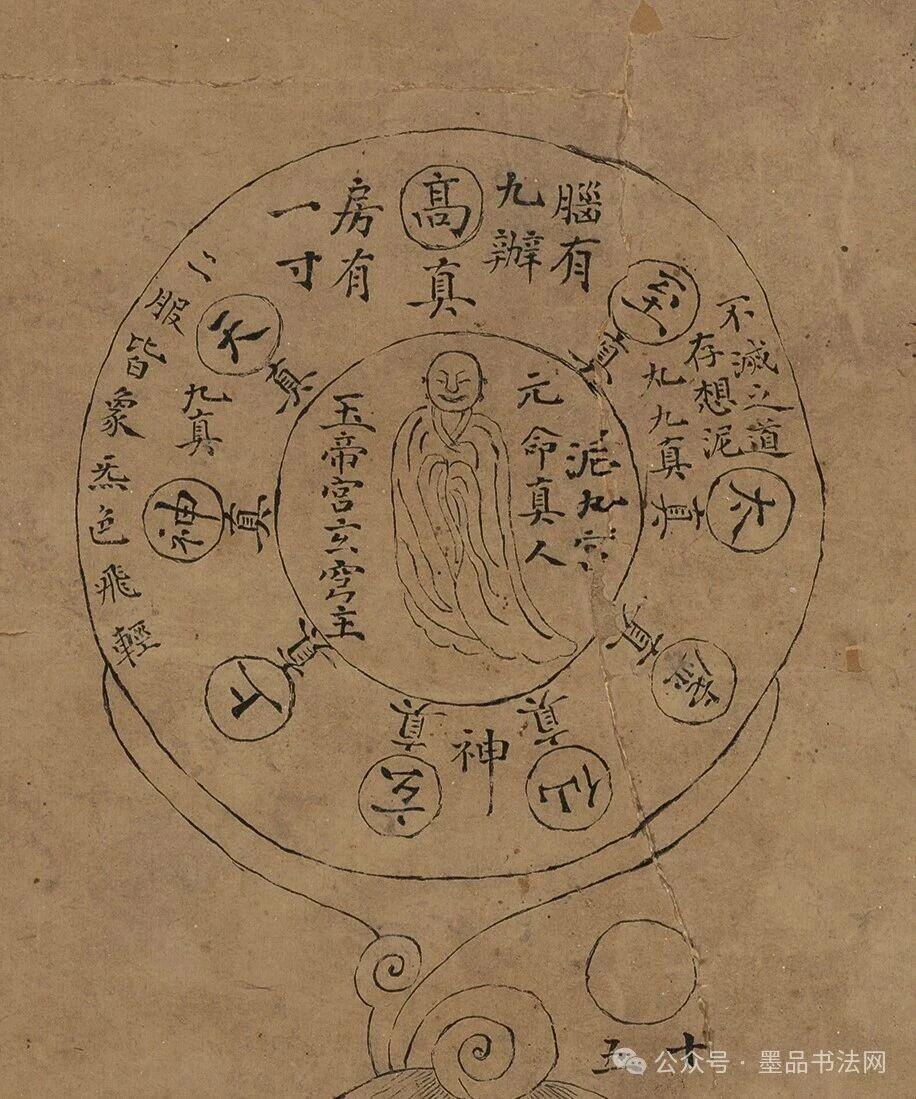 腦有
九辦
房有
一寸
高真
天真
神真
上真
玄真
仙真
太真
真
真
神
九真
九九真
不滅之道
存想泥
二服皆象炁色飛輕
泥丸宮
元命真人
玉帝宮玄穹主
十
五
公众号 · 墨品书法网